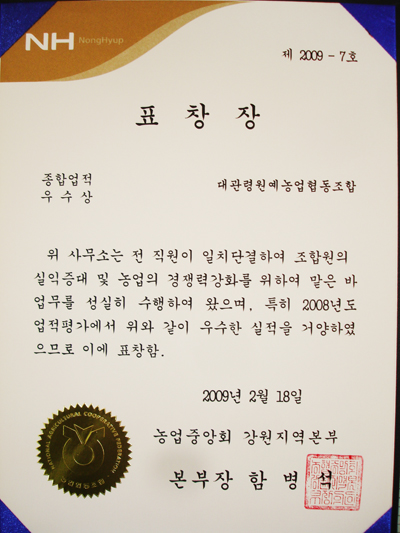 NH NongHyup
제 2009 - 7호
표 창 장
종합업적
우 수 상
대관령원예농업협동조합
위 사무소는 전 직원이 일치단결하여 조합원의
실익증대 및 농업의 경쟁력강화를 위하여 맡은 바
업무를 성실히 수행하여 왔으며, 특히 2008년도
업적평가에서 위와 같이 우수한 실적을 거양하였
으므로 이에 표창함.
2009년 2월 18일
농업중앙회 강원지역본부
본부장 함 병 석
NATIONAL AGRICULTURAL COOPERATIVE FEDERATION